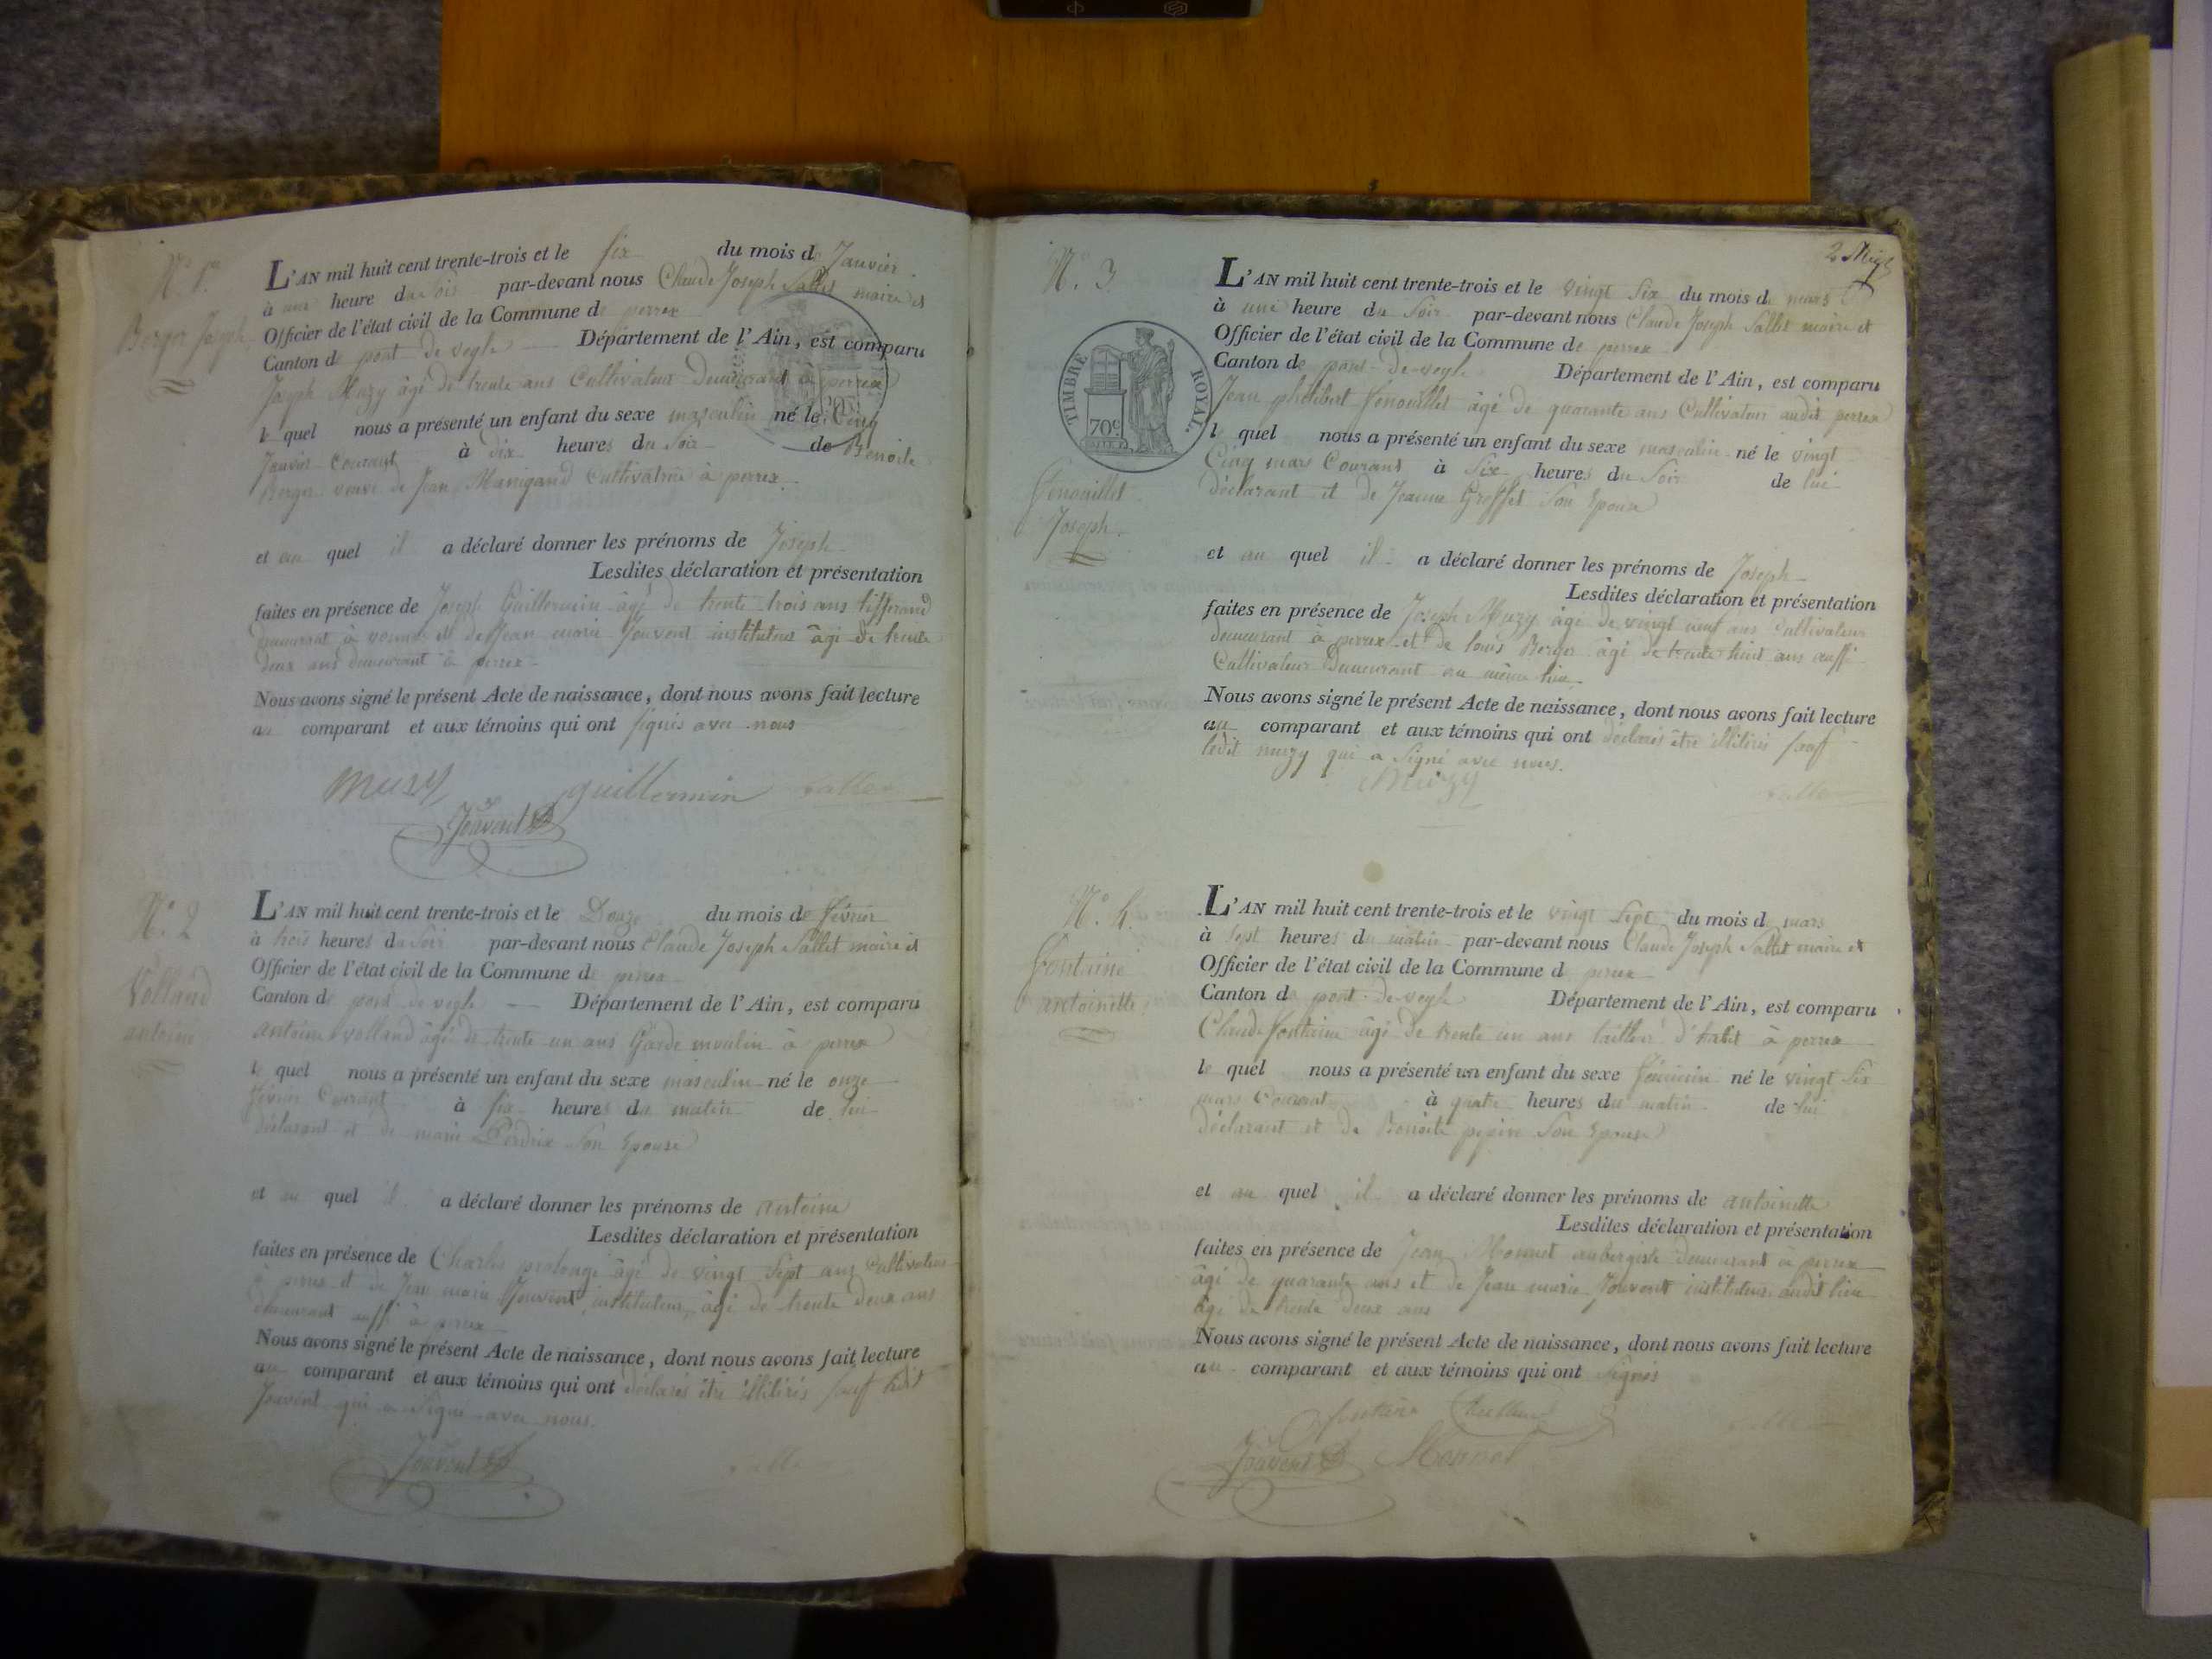 N.° 1.er
Berger Joseph
L'AN mil huit cent trente-trois et le six du mois de Janvier
à une heure du soir par-devant nous Claude Joseph Sallet maire et
Officier de l'état civil de la Commune de perrex
Canton de pont de veyle Département de l'Ain, est comparu
Joseph Muzy âgé de trente ans Cultivateur Demeurant à perrex
le quel nous a présenté un enfant du sexe masculin né le Cinq
Janvier Courant à dix heures du soir de Benoite
Berger veuve de Jean Manigand Cultivatrice à perrex
et au quel il a déclaré donner les prénoms de Joseph
Lesdites déclaration et présentation
faites en présence de Joseph Guillermin âgé de trente trois ans tisserand
demeurant à et de Jean marie Jouvent instituteur âgé de trente
deux ans demeurant à perrex
Nous avons signé le présent Acte de naissance, dont nous avons fait lecture
au comparant et aux témoins qui ont signés avec nous
Muzy guillermin Sallet
Jouvent
N.° 2
Volland
antoine
L'AN mil huit cent trente-trois et le Douze du mois de février
à trois heures du soir par-devant nous Claude Joseph Sallet maire et
Officier de l'état civil de la Commune de perrex
Canton de pont de veyle Département de l'Ain, est comparu
antoine volland âgé de trente un ans Garde moulin à perrex
le quel nous a présenté un enfant du sexe masculin né le onze
février Courant à six heures du matin de lui
déclarant et de marie Perdrix son Epouse
et au quel il a déclaré donner les prénoms de antoine
Lesdites déclaration et présentation
faites en présence de Charles âgé de vingt sept ans Cultivateur
à perrex et de Jean marie Jouvent, instituteur, âgé de trente deux ans
demeurant aussi à perrex
Nous avons signé le présent Acte de naissance, dont nous avons fait lecture
au comparant et aux témoins qui ont déclarés être illitérés sauf ledit
Jouvent qui a signé avec nous.
Jouvent Sallet
2
N.° 3
TIMBRE ROYAL.
70c
fenouillet
Joseph
L'AN mil huit cent trente-trois et le vingt six du mois de mars
à une heure du soir par-devant nous Claude Joseph Sallet maire et
Officier de l'état civil de la Commune de perrex
Canton de pont-de-veyle Département de l'Ain, est comparu
Jean philibert fenouillet âgé de quarante ans Cultivateur audit perrex
le quel nous a présenté un enfant du sexe masculin né le vingt
Cinq mars Courant à six heures du soir de lui
déclarant et de Jeanne Greffet son Epouse
et au quel il a déclaré donner les prénoms de Joseph
Lesdites déclaration et présentation
faites en présence de Joseph Muzy âgé de vingt neuf ans Cultivateur
demeurant à perrex et de louis Berger âgé de trente huit ans aussi
Cultivateur Demeurant au même lieu
Nous avons signé le présent Acte de naissance, dont nous avons fait lecture
au comparant et aux témoins qui ont déclarés être illitérés sauf
ledit muzy qui a signé avec nous.
Muzy Sallet
N.° 4.
fontaine
antoinette
L'AN mil huit cent trente-trois et le vingt sept du mois de mars
à sept heures du matin par-devant nous Claude Joseph Sallet maire et
Officier de l'état civil de la Commune de perrex
Canton de pont-de-veyle Département de l'Ain, est comparu
Claude fontaine âgé de trente un ans tailleur d'habit à perrex
le quel nous a présenté un enfant du sexe féminin né le vingt six
mars Courant à quatre heures du matin de lui
déclarant et de Benoite pepin son Epouse
et au quel il a déclaré donner les prénoms de antoinette
Lesdites déclaration et présentation
faites en présence de Jean Monnet aubergiste demeurant à perrex
âgé de quarante ans et de Jean marie Jouvent instituteur audit lieu
âgé de trente deux ans
Nous avons signé le présent Acte de naissance, dont nous avons fait lecture
au comparant et aux témoins qui ont signés
fontaine Sallet
Jouvent Monnet